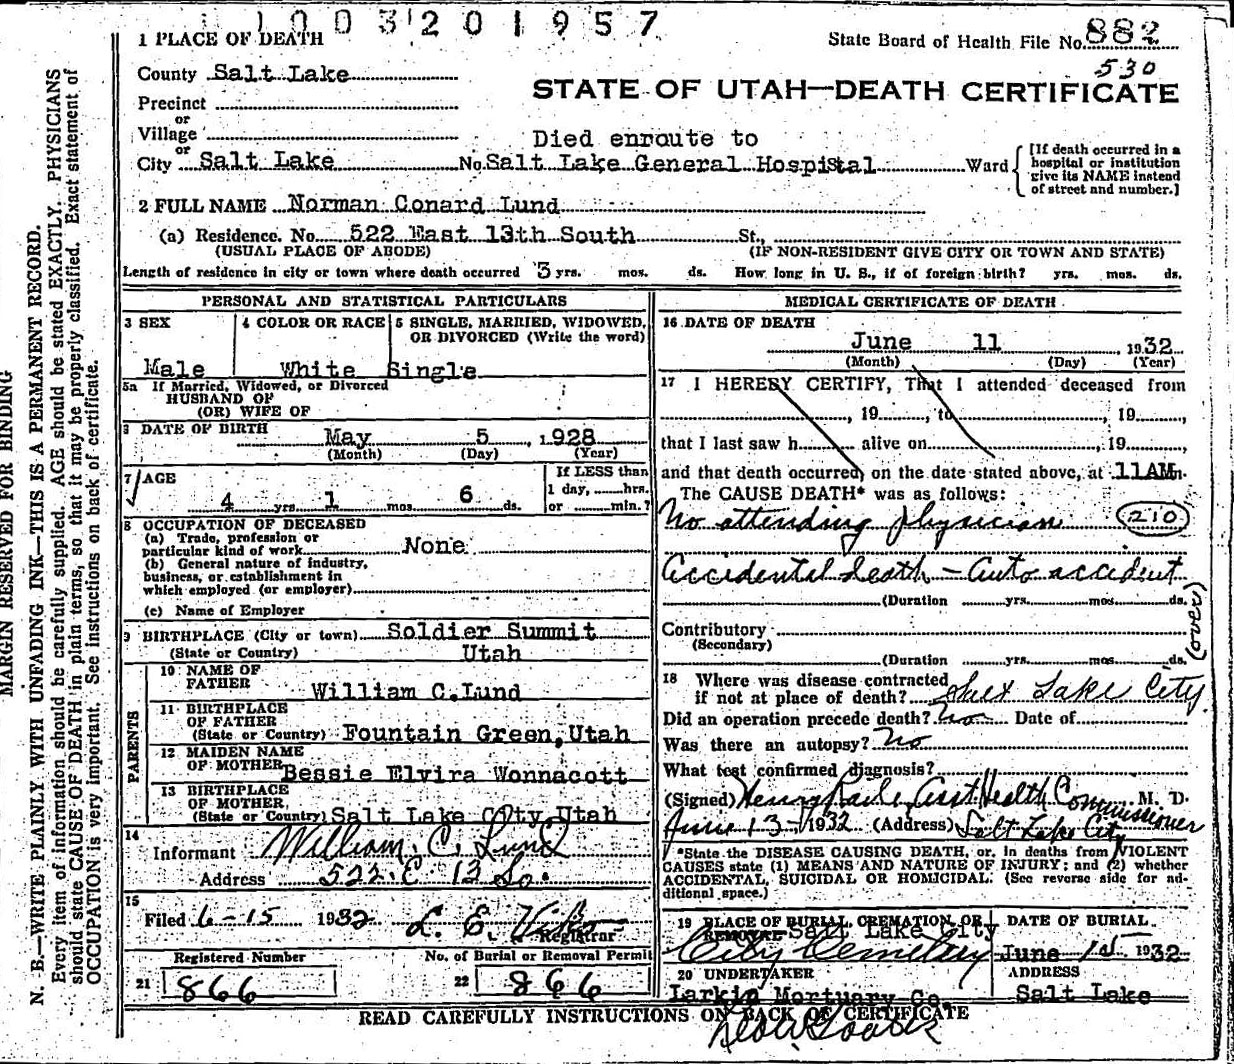 1003201957
1 PLACE OF DEATH
State Board of Health File No. 882
530
County Salt Lake
STATE OF UTAH—DEATH CERTIFICATE
Precinct
or
Village
Died enroute to
or
City Salt Lake No. Salt Lake General Hospital Ward
[If death occurred in a
hospital or institution
give its NAME instead
of street and number.]
2 FULL NAME Norman Conard Lund
(a) Residence. No. 522 East 13th South St.,
(USUAL PLACE OF ABODE) (IF NON-RESIDENT GIVE CITY OR TOWN AND STATE)
Length of residence in city or town where death occurred 3 yrs. mos. ds. How long in U. S., if of foreign birth? yrs. mos. ds.
PERSONAL AND STATISTICAL PARTICULARS
3 SEX
4 COLOR OR RACE
5 SINGLE, MARRIED, WIDOWED,
OR DIVORCED (Write the word)
Male White Single
5a If Married, Widowed, or Divorced
HUSBAND OF
(OR) WIFE OF
DATE OF BIRTH
May 5, 1928
(Month) (Day) (Year)
7 AGE
If LESS than
1 day, hrs.
or min.?
4 yrs. 1 mos. 6 ds.
8 OCCUPATION OF DECEASED
(a) Trade, profession or
particular kind of work None
(b) General nature of industry,
business, or establishment in
which employed (or employer)
(c) Name of Employer
9 BIRTHPLACE (City or town) Soldier Summit
(State or Country) Utah
PARENTS
10 NAME OF
FATHER William C. Lund
11 BIRTHPLACE
OF FATHER
(State or Country) Fountain Green, Utah
12 MAIDEN NAME
OF MOTHER Bessie Elvira Wonnacott
13 BIRTHPLACE
OF MOTHER
(State or Country) Salt Lake City, Utah
14
Informant William C. Lund
Address 522 E 13 So.
15
Filed 6-15 1932 L. E.
Registrar
Registered Number No. of Burial or Removal Permit
21 866 22 866
MEDICAL CERTIFICATE OF DEATH
16 DATE OF DEATH
June 11 1932
(Month) (Day) (Year)
17 I HEREBY CERTIFY, That I attended deceased from
, 19 , to , 19 ,
that I last saw h alive on , 19
and that death occurred, on the date stated above, at 11AM m.
The CAUSE DEATH* was as follows:
No attending physician 210
Accidental death - Auto accident
(Duration yrs. mos. ds.
(over)
Contributory
(Secondary)
(Duration yrs. mos. ds.
18 Where was disease contracted
if not at place of death? Salt Lake City
Did an operation precede death? No Date of
Was there an autopsy? No
What test confirmed diagnosis?
(Signed) Henry Asst Health Commissioner M. D.
June 13 - 1932 (Address) Salt Lake City
*State the DISEASE CAUSING DEATH, or, in deaths from VIOLENT
CAUSES state (1) MEANS AND NATURE OF INJURY; and (2) whether
ACCIDENTAL, SUICIDAL OR HOMICIDAL. (See reverse side for ad-
ditional space.)
19 PLACE OF BURIAL CREMATION OR
REMOVAL Salt Lake City
City Cemetery
DATE OF BURIAL
June 15 1932
20 UNDERTAKER
Larkin Mortuary Co.
ADDRESS
Salt Lake
READ CAREFULLY INSTRUCTIONS ON BACK OF CERTIFICATE
MARGIN RESERVED FOR BINDING
N. B.—WRITE PLAINLY WITH UNFADING INK—THIS IS A PERMANENT RECORD.
Every item of information should be carefully supplied. AGE should be stated EXACTLY. PHYSICIANS
should state CAUSE OF DEATH in plain terms, so that it may be properly classified. Exact statement of
OCCUPATION is very important. See instructions on back of certificate.